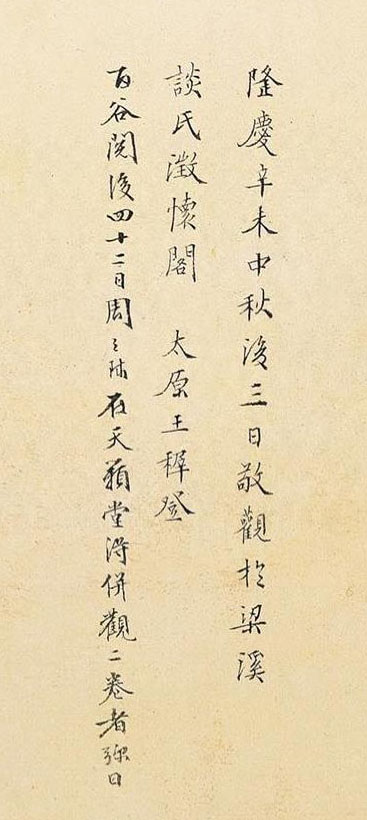 隆慶辛未中秋後三日敬觀於梁溪
談氏澂懷閣　太原王穉登
百谷閱後四十二日周之球在天籟堂淂併觀二卷者弥日